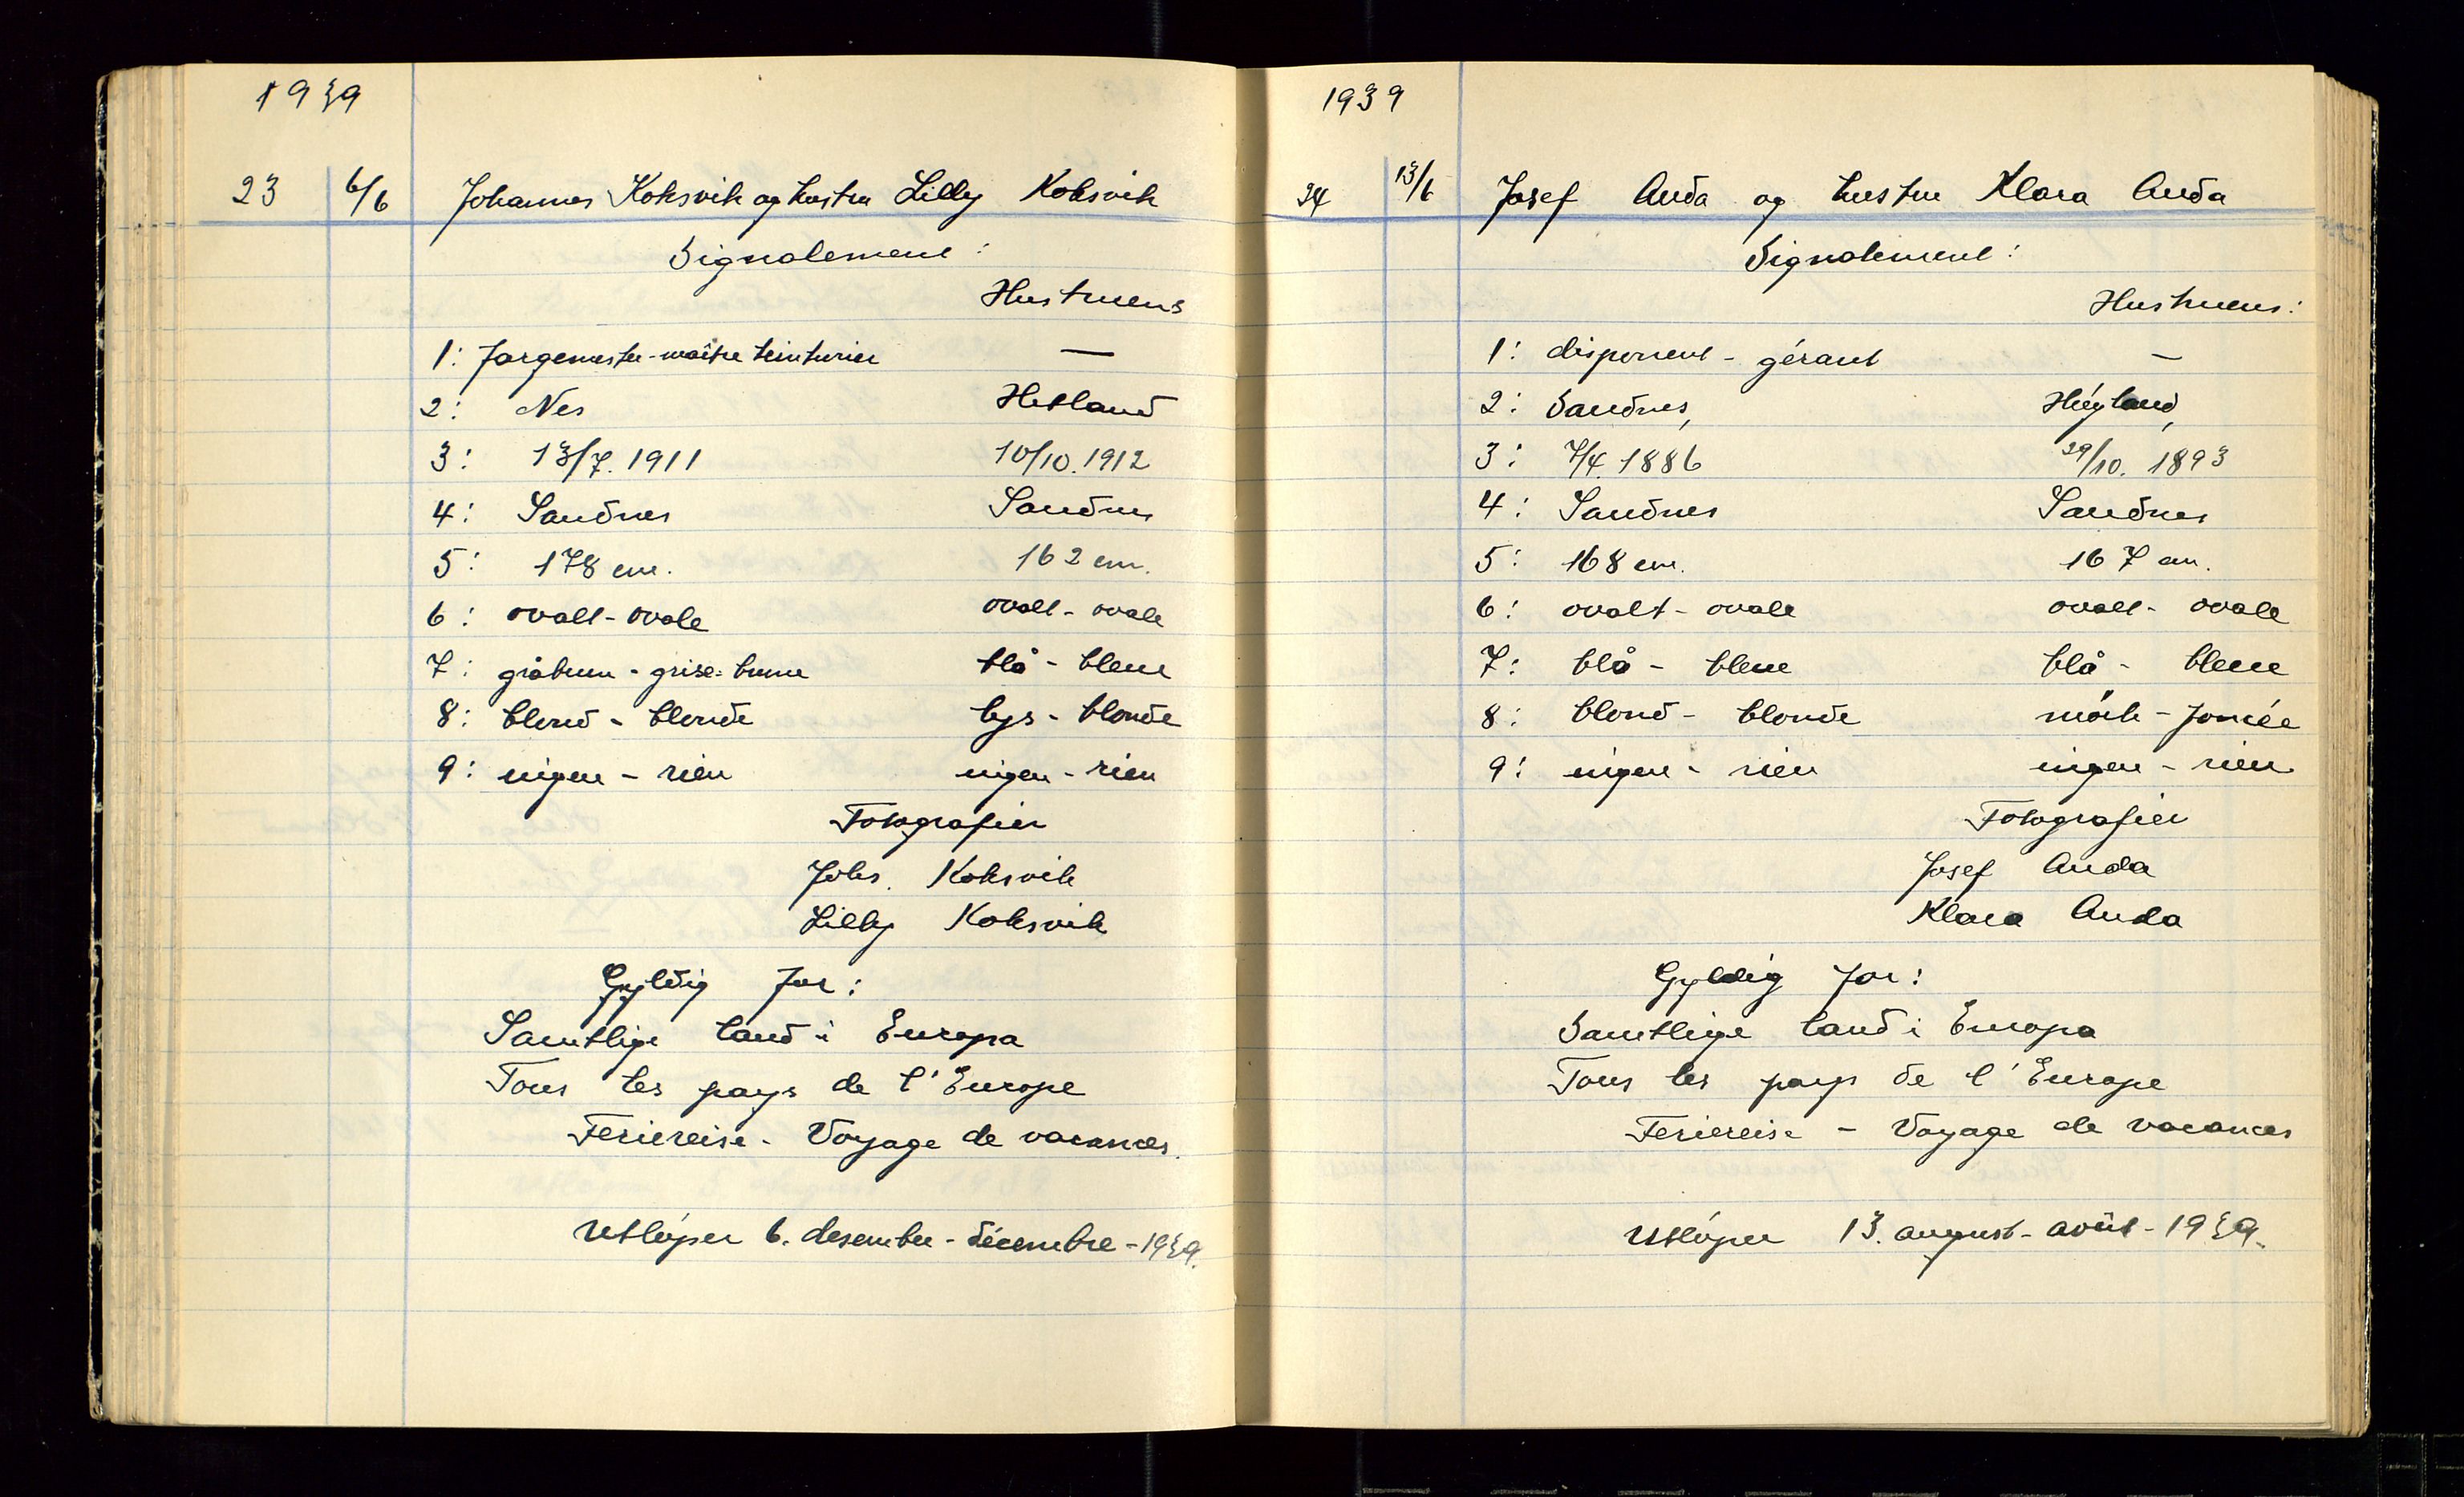 1939
23 6/6 Johannes Koksvik og hustru Lilly Koksvik
Signalement:
Hustruens
1: Fargemester - maître teinturier —
2: Nes Hetland
3: 13/7. 1911 10/10. 1912
4: Sandnes Sandnes
5: 178 cm. 162 cm.
6: ovalt - ovale ovalt - ovale
7: gråbrun - grise-brune blå - bleue
8: blond - blonde lys - blonde
9: ingen - rien ingen - rien
Fotografier
Johs. Koksvik
Lilly Koksvik
Gyldig for:
Samtlige land i Europa
Tous les pays de l'Europe
Feriereise - Voyage de vacances.
Utløper 6. desember - décembre - 1939.
1939
24 13/6 Josef Auda og hustru Klara Auda
Signalement:
Hustruens:
1: disponent - gérant —
2: Sandnes, Høyland,
3: 7/4. 1886 29/10. 1893
4: Sandnes Sandnes
5: 168 cm. 167 cm.
6: ovalt - ovale ovalt - ovale
7: blå - bleue blå - bleue
8: blond - blonde mörk - foncée
9: ingen - rien ingen - rien
Fotografier
Josef Auda
Klara Auda
Gyldig for:
Samtlige land i Europa
Tous les pays de l'Europe
Feriereise - Voyage de vacances
Utløper 13. august - août - 1939.